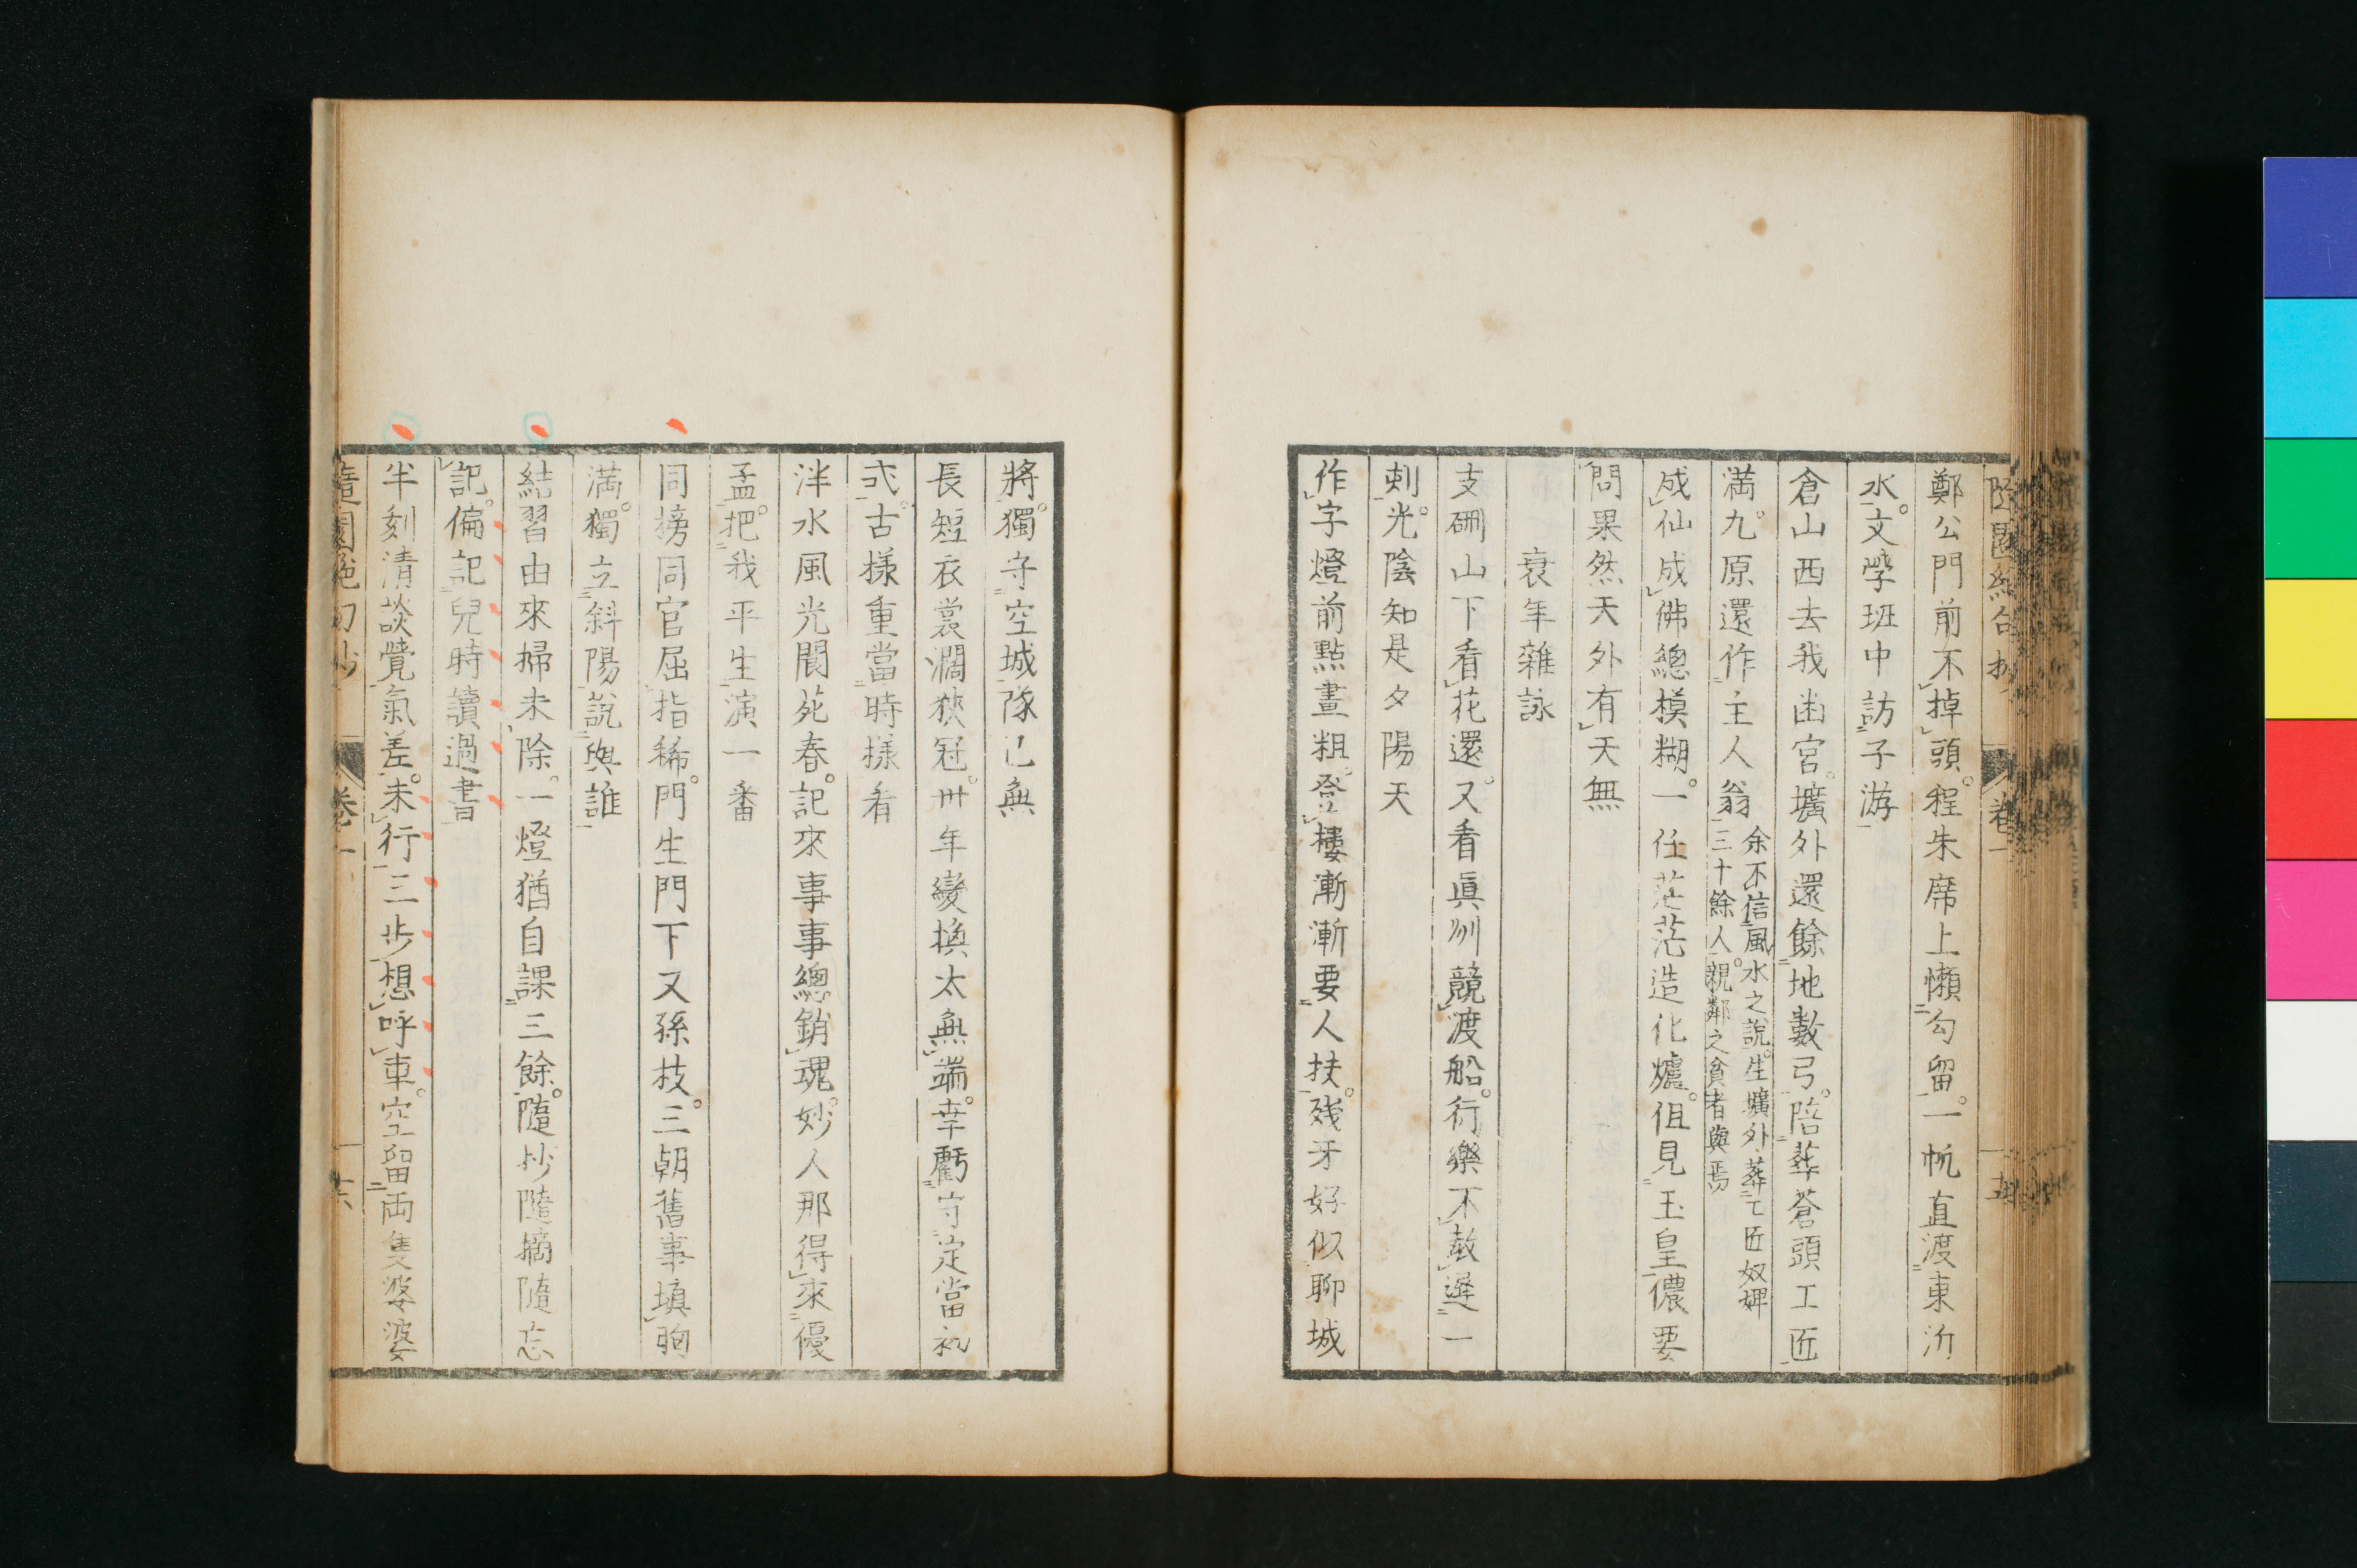 鄭公門前不掉頭。程朱席上懶勾留。一帆直渡東沂
水。文學班中訪子游
倉山西去我幽宮。壙外還餘地數弓。陪葬蒼頭工匠
満。九原還作主人翁
余不信風水之說。生壙外葬工匠奴婢
三十餘人。親鄰之貧者與焉
成仙成佛總模糊。一任茫茫造化爐。但見玉皇儂要
問果然天外有天無
衰年雜詠
支硎山下看花還。又看眞州競渡船。行樂不敢遲一
刺。光陰知是夕陽天
作字燈前點畫粗。登樓漸漸要人扶。殘牙好似聊城
將。獨守空城隊已無
長短衣裳濶狹冠。卅年變換太無端。幸虧守定當初
式。古様重當時様看
泮水風光閬苑春。記來事事總銷魂。妙人那得來優
孟。把我平生演一番
同榜同官屈指稀。門生門下又孫枝。三朝舊事塡胸
満。獨立斜陽說與誰
結習由來掃未除。一燈猶自課三餘。隨抄隨摘隨忘
記。偏記兒時讀過書
半刻清談覺氣差。未行三步想呼車。空留両隻婆婆
隨園絶句抄
卷一
六